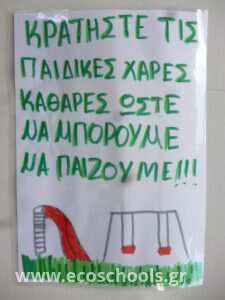 ΚΡΑΤΗΣΤΕ ΤΙΣ
ΠΑΙΔΙΚΕΣ ΧΑΡΕΣ
ΚΑΘΑΡΕΣ ΩΣΤΕ
ΝΑ ΜΠΟΡΟΥΜΕ
ΝΑ ΠΑΙΖΟΥΜΕ!!!
www.ecoschools.gr